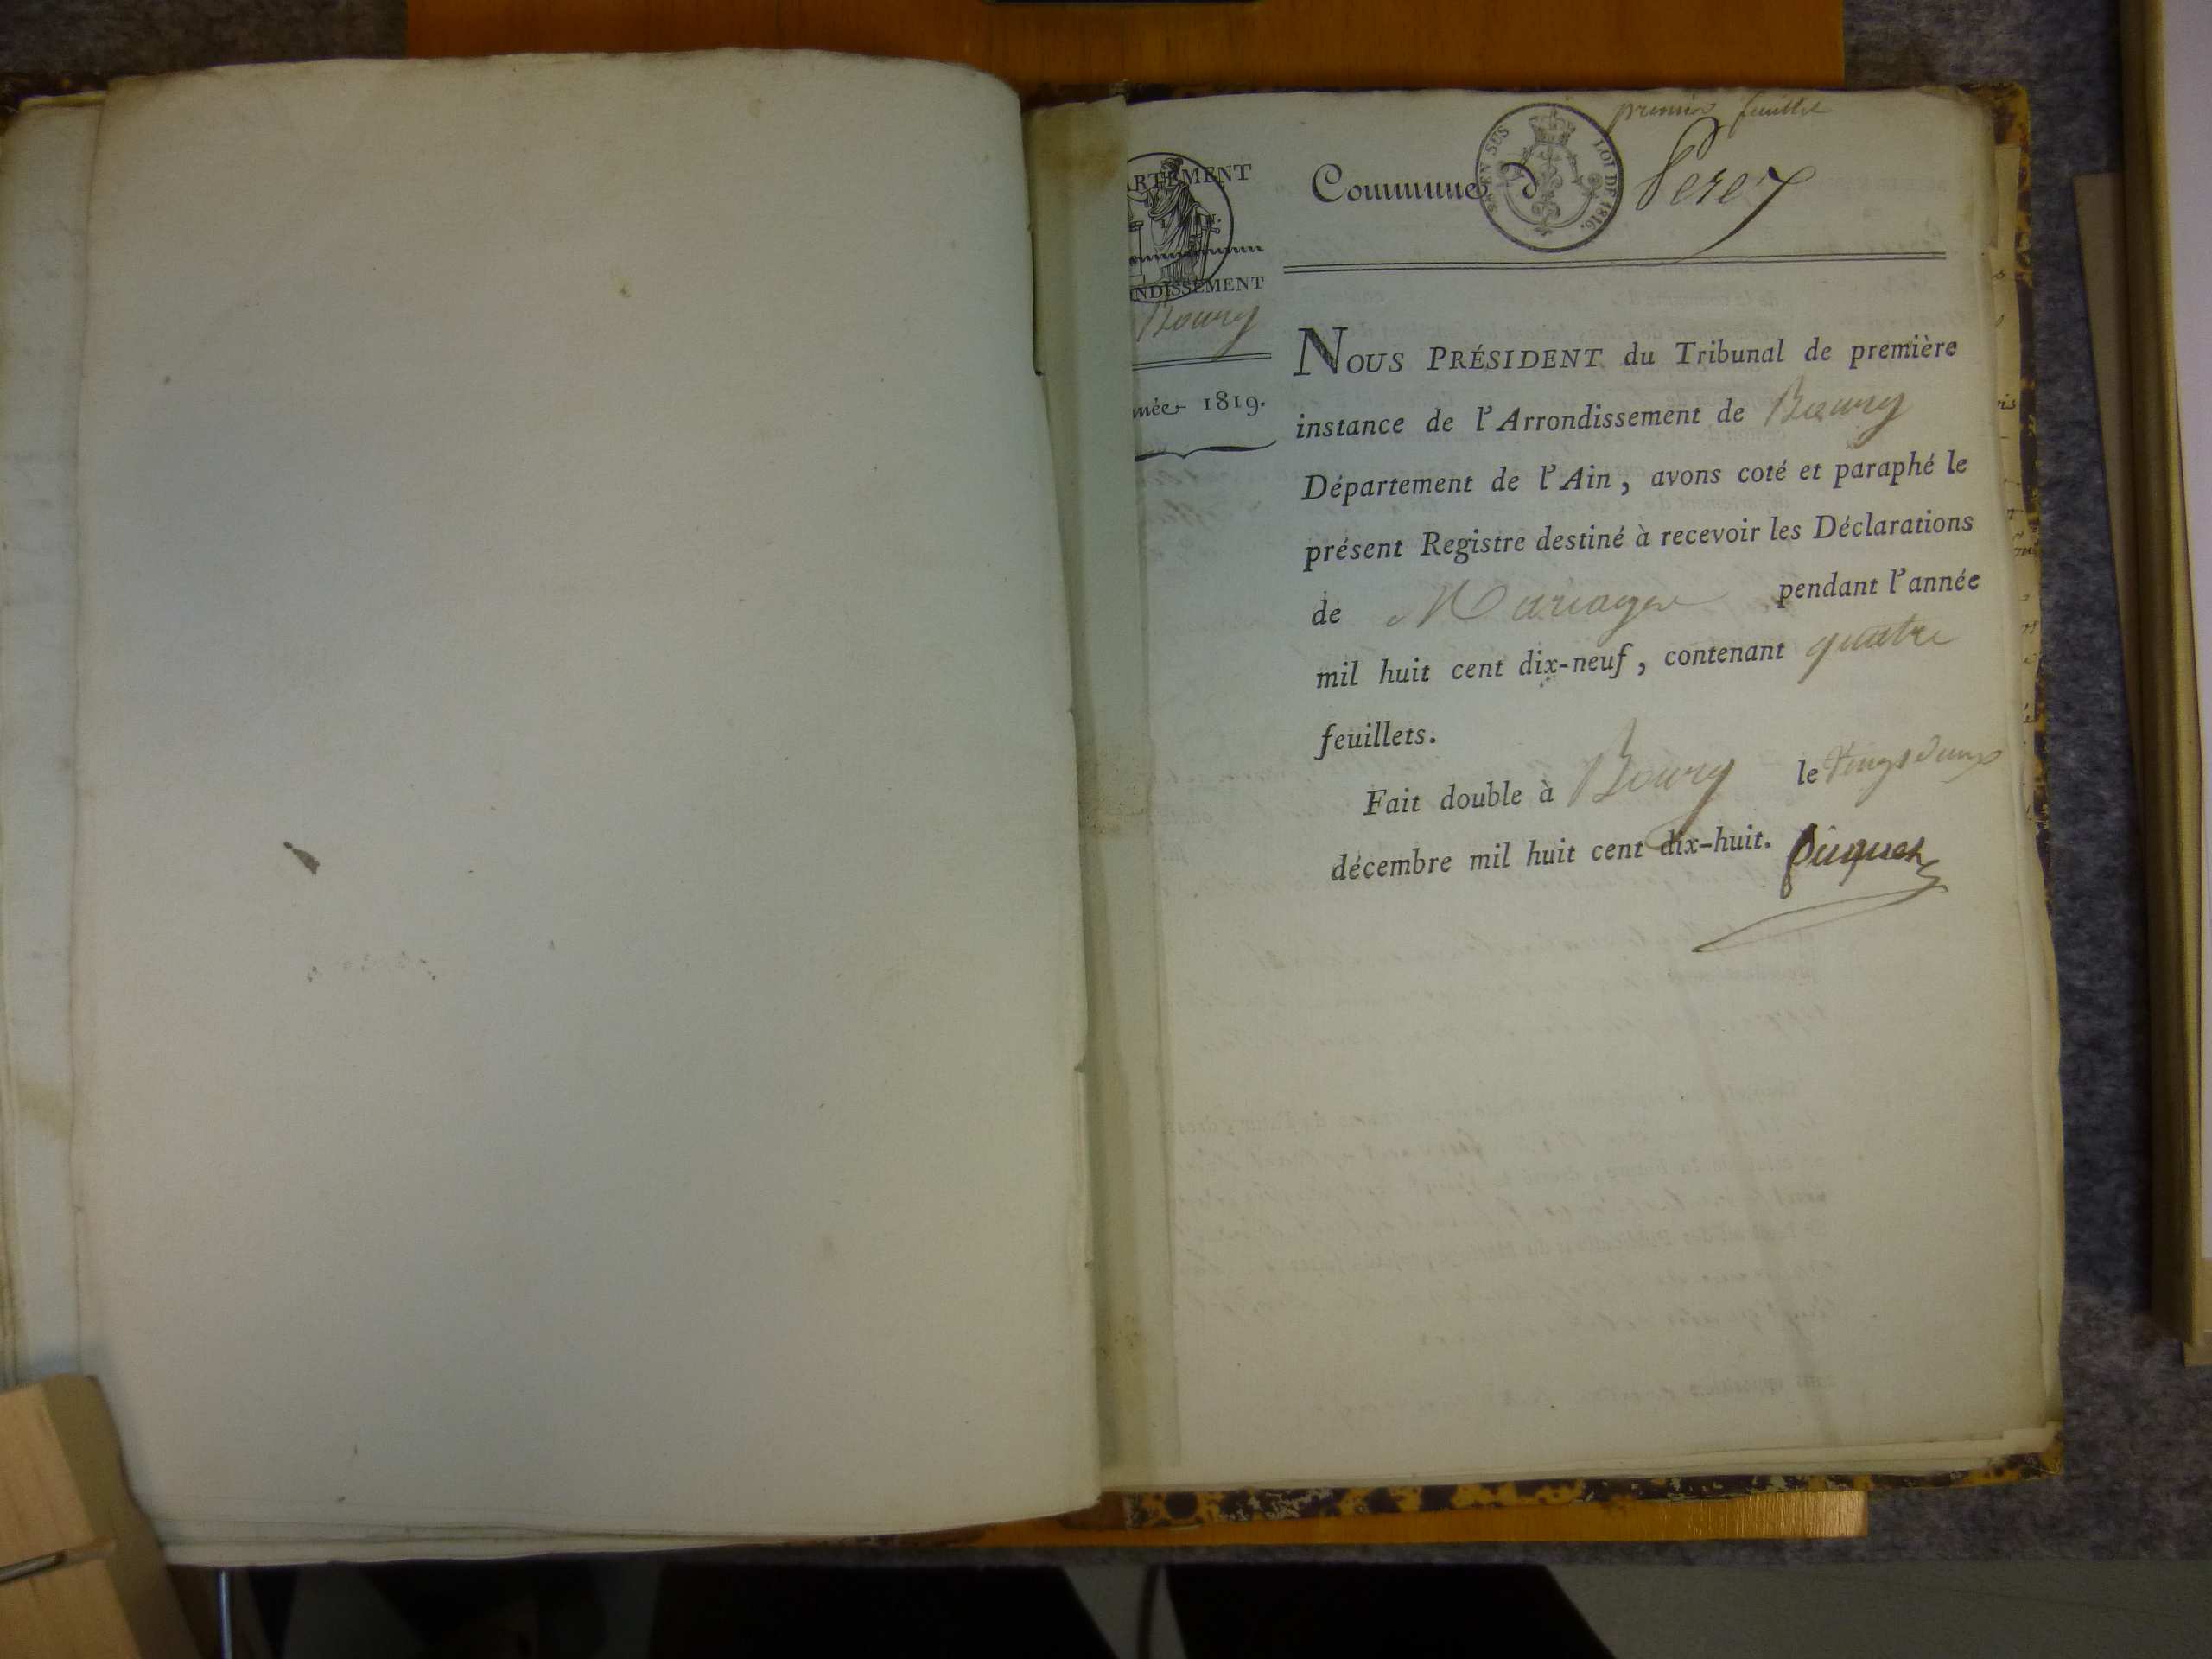 premier feuillet
Commune d Perex
SUS LOI DE 1816.
ARTEMENT
NDISSEMENT
Bourg
nnée 1819.
NOUS PRÉSIDENT du Tribunal de première
instance de l'Arrondissement de Bourg
Département de l'Ain, avons coté et paraphé le
présent Registre destiné à recevoir les Déclarations
de Mariages pendant l'année
mil huit cent dix-neuf, contenant quatre
feuillets.
Fait double à Bourg le Vingt deux
décembre mil huit cent dix-huit.